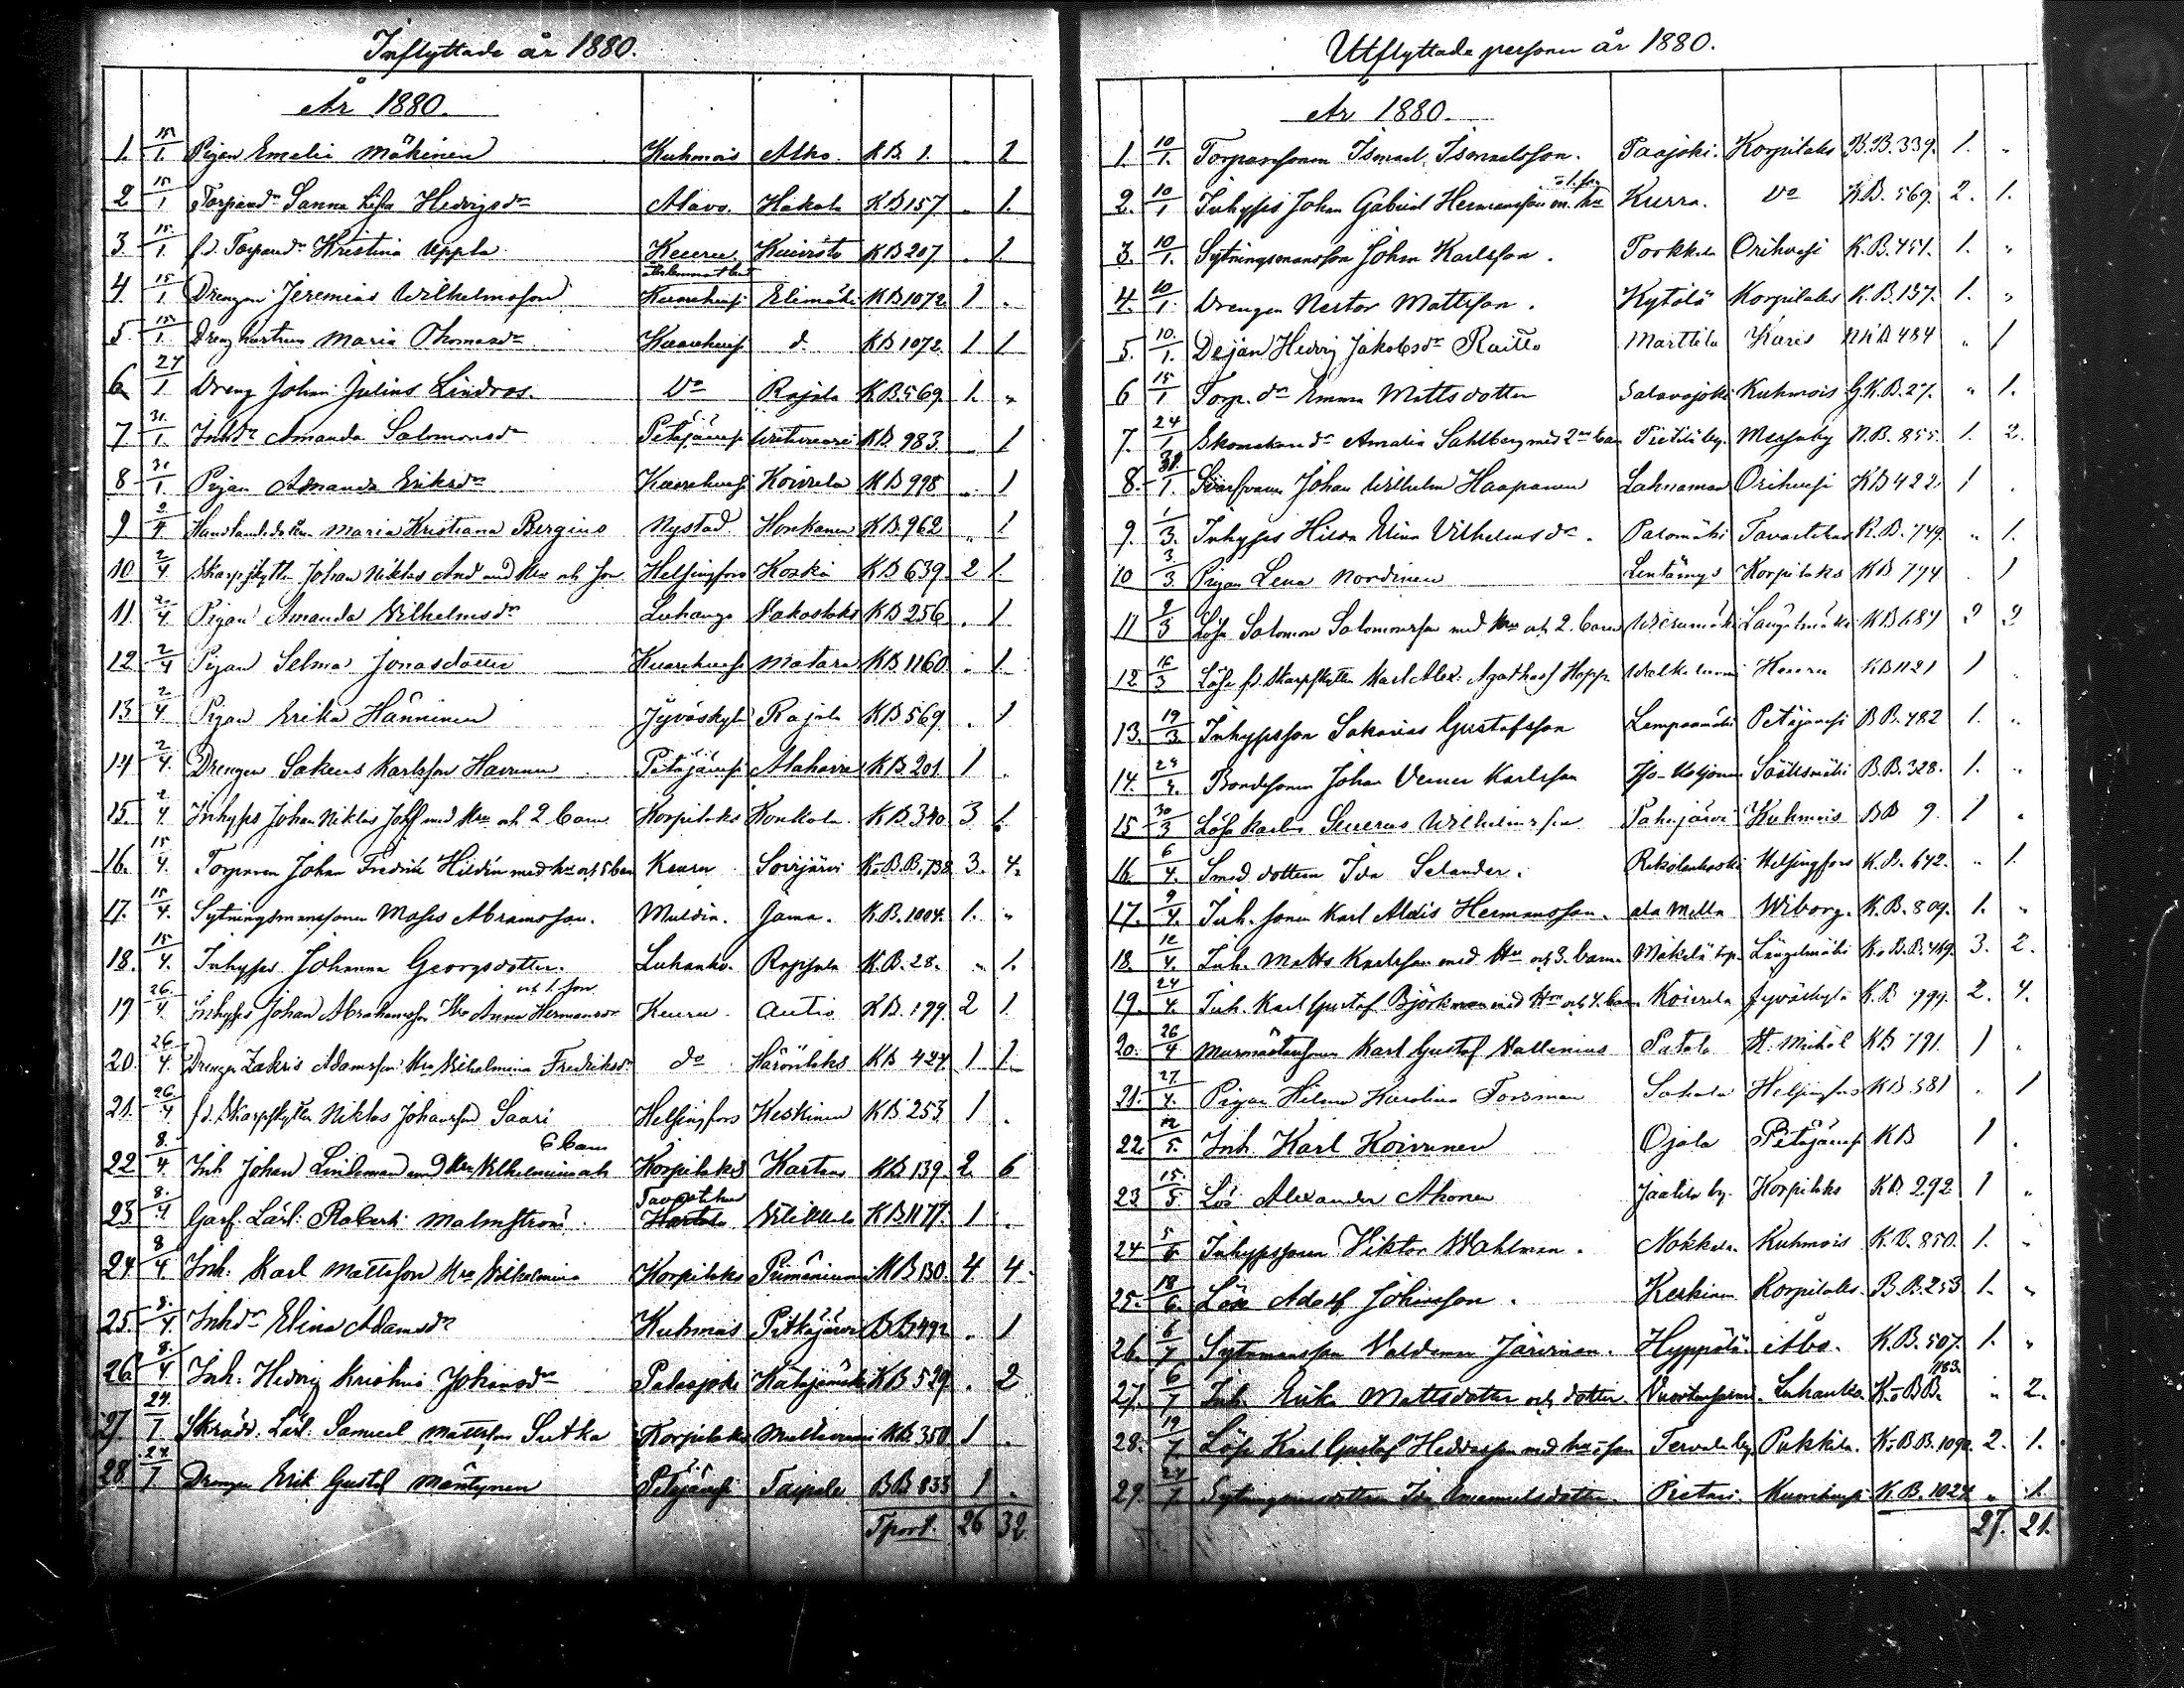 Inflyttade år 1880.
År 1880.
1. 15/1. Pigan Emelie Mäkinen Kuhmois Alho KB. 1. „ 1
2 15/1 Torpared:r Sanna Lisa Hedvigsd:r Alavo. Hakola KB 157 „ 1.
3. 15/1 f.d. Torpared:r Kristina Uppla Keuru Kuivisto KB 207 „ 1
4 15/1 Drengen Jeremias Wilhelmsson Kuorehvesi Elimäki KB 1072. 1 „
5 15/1. Dreng hustrun Maria Thomasd:r Kuorehvesi d. KB 1072. 1 1
6 27/1 Dreng Johan Julius Lindros. D:o Rajala KB. 569. 1. „
7 31/1. Inhd:r Amanda Salomonsd:r Petäjävesi KB. 983. „ 1
8 31/1. Pigan Amanda Eriksd:r Kuorehvesi Koivula KB 998 „ 1
9 2/4 Handlandedottern Maria Kristiana Bergius Nystad Honkanen KB. 962 „ 1
10 2/4. Skarpskytten Johan Niklas And med hu och son Helsingfors Koski KB 639. 2 1.
11. 2/4. Pigan Amanda Vilhelmsd:r Luhango KB 256 . 1
12 2/4 Pigan Selma Jonasdotter Kuorehvesi Matara KB 1160. „ 1.
13 2/4. Pigan Erika Hänninen Jyväskylä Rajala KB 569. . 1
14 2/4. Drengen Sakeus Karlsson Petäjävesi KB. 201. 1 .
15. 2/4. Inhyses Johan Niklas Joh med hu och 2 barn Korpilaks Konkola. KB. 340. 3 1.
16. 15/4. Torparen Johan Fredrik Hildén med hu och 5 barn Keuru Sovijärvi K.B.B. 738. 3. 4.
17. 15/4. Sytningsmanssonen Moses Abramsson. Muldia. Jama. K.B. 1004. 1. „
18. 15/4. Inhyses Johanna Georgsdotter. Luhanko. K.B. 28. „ 1.
och 1. son
19 26/4 Inhyses Johan Abrahamsson Hu Anna Hermansd:r Keuru. Autio KB. 199. 2 1.
20. 26/4. Drengen Zakris Adamsson Hu Vilhelmina Fredriksd:r d:o KB 424. 1 1.
21. 26/4 f.d. Skarpskytten Niklas Johansson Saari Helsingfors Keskinen KB 253 1 .
6 barn
22 8/4. Inh Johan Lindeman med hu Vilhelmina och Korpilaks Kartano KB. 139. 2. 6
23 8/4 Garf. Lärl: Robert Malmström. Hartola KB 1177. 1 .
24 8/4 Inh: Karl Mattsson hu Vilhelmina Korpilaks KB 130. 4 4.
25. 8/4. Inhd:r Elina Adamsd:r Kuhmois Pitkäjärvi BB 492 . 1
26. 8/4 Inh: Hedvig Kristina Johansd:r Padasjoki KB 529. . 2
27 24/7 Skrädd. Lärl: Samuel Mattsson Sutka Korpilaks KB. 350 1 .
28. 24/7 Drengen Erik Gustaf Mäntynen Petäjävesi Taipale BB 833 1 .
Tport. 26 32.
Utflyttade personer år 1880.
År 1880.
1. 10/1. Torparesonen Ismael Ismaelsson. Taajoki. Korpilaks B.B. 339. 1. „
o 1. son
2. 10/1 Inhyses Johan Gabriel Hermansson m. hu Kurra. D:o K.B. 569. 2. 1.
3. 10/1. Sytningsmansson Johan Karlsson. Torkkala Orihvesi K.B. 451. 1. „
4. 10/1. Drengen Nestor Mattsson. Kytölä Korpilaks K.B. 137. 1. „
5. 10/1. Pejan Hedvig Jakobsd:r Raitto Marttila Karis KB 484 „ 1
6 15/1 Torp. d:r Emma Mattsdotter Salavajoki Kuhmois G.K.B. 27. „ 1.
7. 24/1 Skomakared:r Amalia Sahlberg med 2:ne barn by. Messuby K.B. 855. 1. 2.
8. 31/1. Johan Wilhelm Haapanen Lahnamaa Orihvesi KB 422. 1 .
9. 1/3. Inhyses Hilda Elina Vilhelmsd:r. Palomäki Tavastehus K.B. 749. „ 1.
10 3/3. Pigan Lena Nordinen Korpilaks KB 794 . 1
11 9/3 Löse Salomon Salomonsson med hu och 2. barn Längelmäki KB 684 2 2
12 16/3 Löse fd. Skarpskytten Karl Alex: Hopp Keuru KB 1121 1 „
13. 19/3. Inhysesson Sakarias Gustafsson Petäjävesi B.B. 482 1. „
14. 23/3. Bondesonen Johan Verner Karlsson Sääksmäki B.B. 328. 1. „
15 30/3 Löse karlen Severus Wilhelmsson Pahajärvi Kuhmois BB 9. 1 „
16. 6/4. Smed dottern Ida Selander. Helsingfors K.B. 642. „ 1.
17. 9/4. Inh. sonen Karl Aldis Hermansson. ala Mella Wiborg. K.B. 809. 1. „
18. 12/4. Inh. Matts Karlsson med Hu och 3. barn. Mäkelä torp. Längelmäki K.B.B. 469. 3. 2.
19. 24/4. Inh. Karl Gustaf Björkman med Hu och 4. barn Koivula Jyväskylä K.B 994. 2. 4.
20. 26/4 Murmästaresonen Karl Gustaf Vallenius Patala St. Mickel KB 791. 1 .
21. 27/4. Pigan Hilma Karolina Forsman Sahala Helsingfors KB 581 . 1
22. 12/5. Inh. Karl Koivunen Ojala Petäjävesi KB 1 .
23 15/5. Lös Alexander Ahonen by. Korpilaks KB. 292 1 „
24 5/6 Inhysessonen Viktor Wahlman. Nokkala. Kuhmois K.B. 850. 1. „
25. 18/6. Löse Adolf Johansson. Keskinen Korpilaks. B.B. 253 1. „
26. 6/7 Sytnmansson Valdemar Järvinen. Hyppölä Åbo. K.B. 507. 1. „
27. 6/7 Inh. Erika Mattsdotter och dotter Luhanko. K.B.B. 183. „ 2.
28. 19/7 Löse Karl Gustaf med hu o son Tervala by Pukkila. K.B.B. 1090. 2. 1.
29. 24/7 Sytningsmansdottern Ida Emanuelsdotter. Pietari. Kuorehvesi K.B. 1024. „ 1.
27. 21.